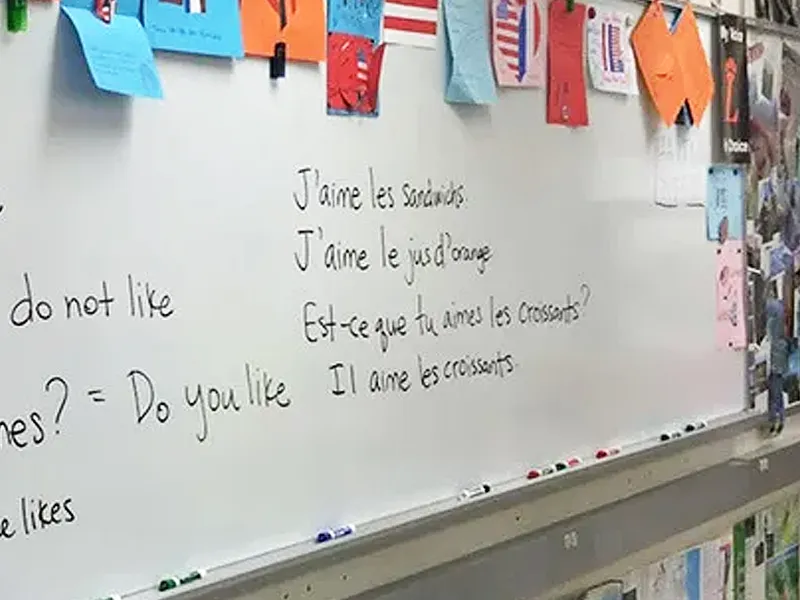 J'aime les sandwichs
J'aime le jus d'orange
do not like
Est-ce que tu aimes les croissants?
= Do you like
Il aime les croissants.
likes